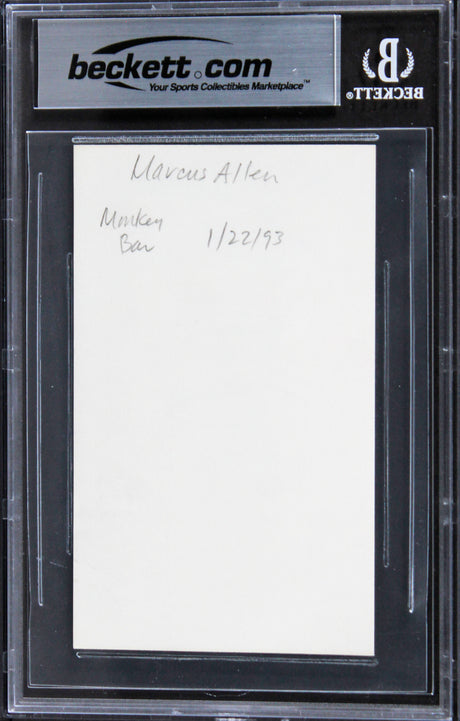 beckett.com
Your Sports Collectibles Marketplace™
B
BECKETT®
Marcus Allen
Monkey
Bar 1/22/93